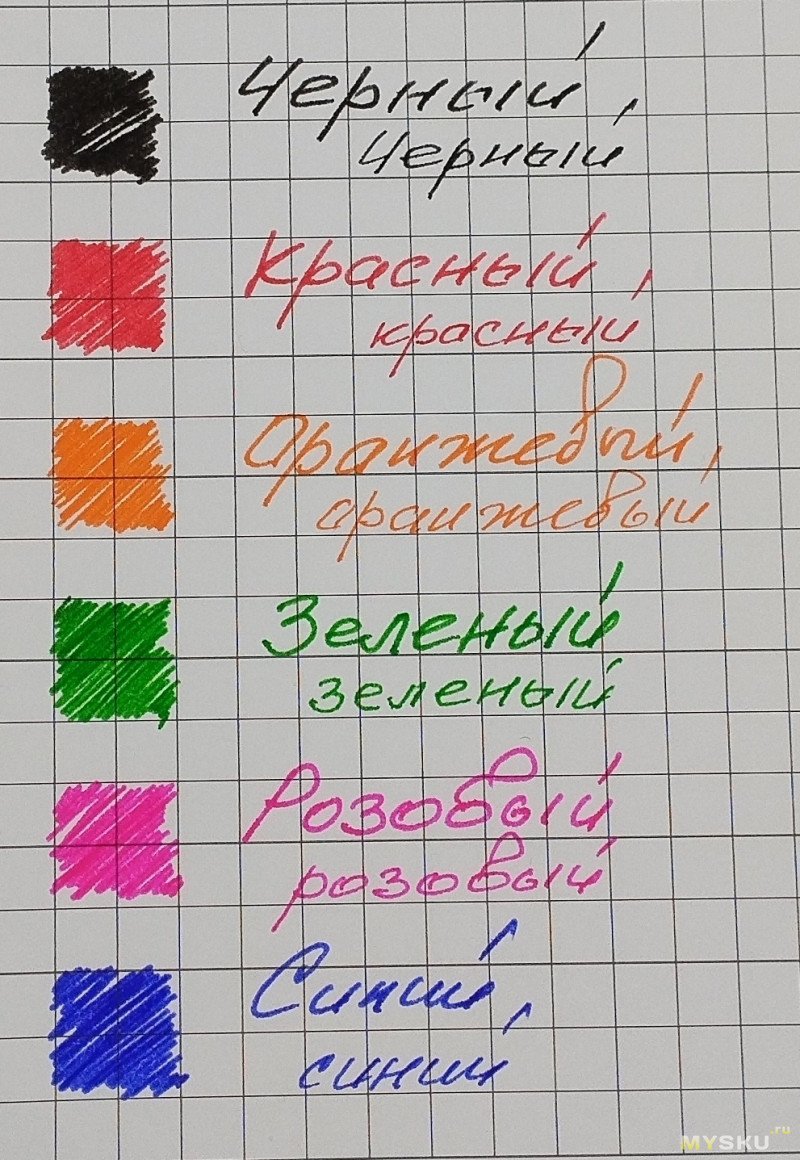 Черный,
Черный
Красный,
красный
Оранжевый,
оранжевый
Зеленый
зеленый
Розовый
розовый
Синий,
синий
MYSKU.ru